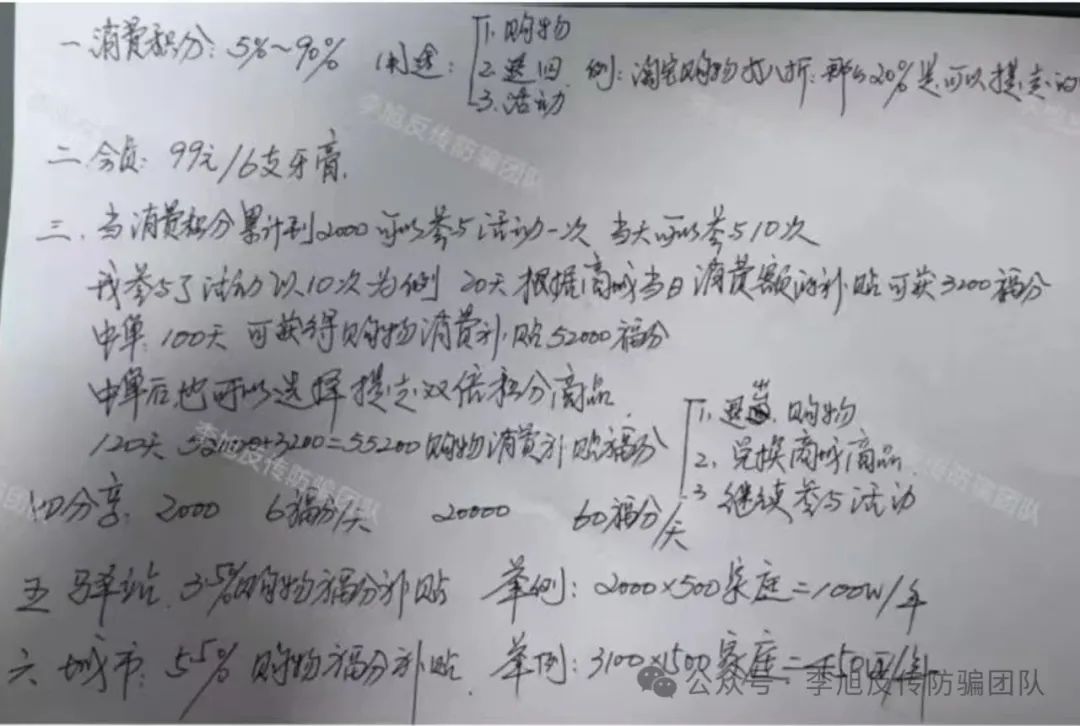 一 消费积分: 5%~90% 用途: 1. 购物
2. 退回 例: 淘宝购物打八折. 那么20%是可以提走的
3. 活动
二. 会员: 99元/6支牙膏.
三. 当消费积分累计到2000可以参与活动一次 当天可以参与10次
我参与了活动以10次为例 20天根据商城当日消费额的补贴可获3200福分
中单: 100天 可获得购物消费补贴52000福分
中单后也可以选择提走双倍积分商品.
120天 52000+3200=55200购物消费补贴福分
1. 购物
2. 兑换商城商品.
3 继续参与活动
四分享: 2000 6福分/天 20000 60福分/天
五 驿站. 3.5%购物福分补贴 举例: 2000×500家庭=100W/年
六 城市: 5.5% 购物福分补贴. 举例: 3100×1500家庭=
公众号 · 李旭反传防骗团队
李旭反传防骗团队
李旭反传防骗团队
李旭反传防骗团队